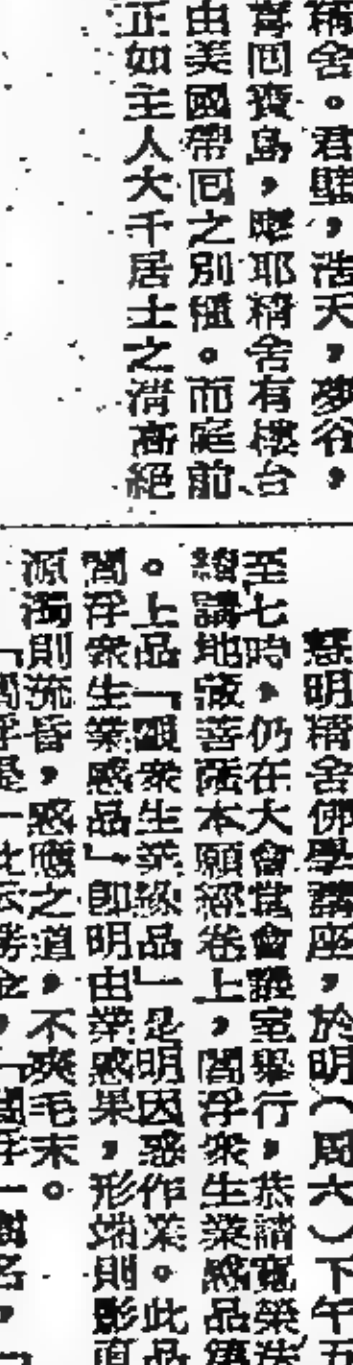 精舍。君壁,浩天,夢谷,
宵囘寶島,應耶精舍有樓台
由美國帶囘之別種。而庭前
正如主人大千居士之淸高絕
慧明精舍佛學講座,於明(周六)下午五
至七時,仍在大會堂會議室舉行,恭請寬榮法
繪講地藏菩薩本願經卷上,閻浮衆生業感品第
。上品「觀衆生業緣品」是明因惑作業。此品
閻浮衆生業感品」卽明由業感果,形端則影直
源濁則流昏,感應之道,不爽毛末。
「閻浮是一此云勝金,「閻浮一樹名,